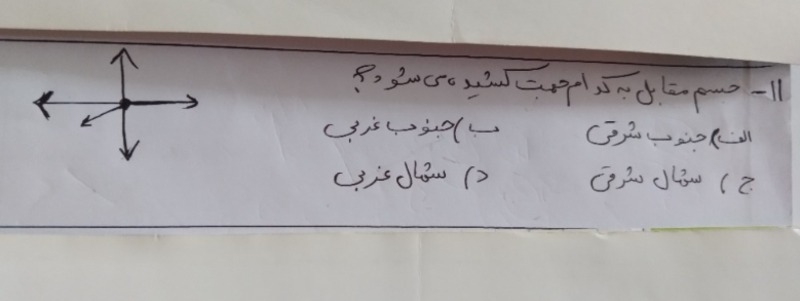 ۱۱- جسم مقابل به کدام جهت کشیده می شود؟
الف) جنوب شرقی ب) جنوب غربی
ج) شمال شرقی د) شمال غربی